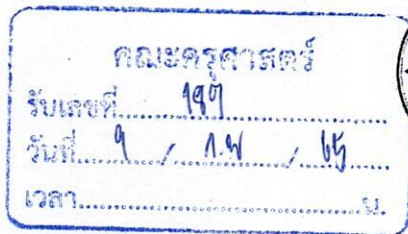 คณะครุศาสตร์
รับเลขที่ 187
วันที่ 9 / ก.พ / 65
เวลา น.